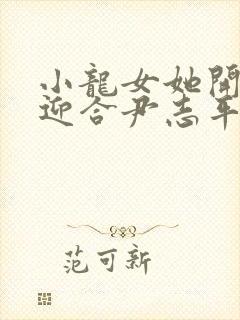 小龍女她開
迎合尹志平
范可新